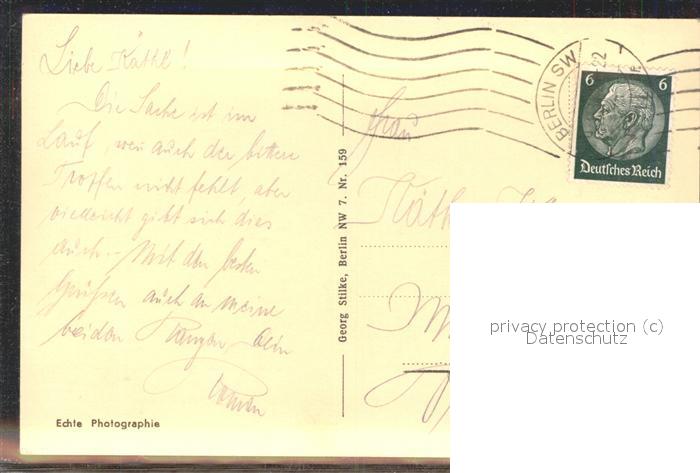 Liebe Käthl!
Die Sache ist im
Lauf, wen auch der bittere
Tropfen nicht fehlt, aber
vieleicht gibt sich dies
auch. – Mit den besten
Grüßen auch an meine
beiden
Echte Photographie
Georg Stilke, Berlin NW 7. Nr. 159
Frau
BERLIN SW
22
6 6
Deutsches Reich
privacy protection (c)
Datenschutz